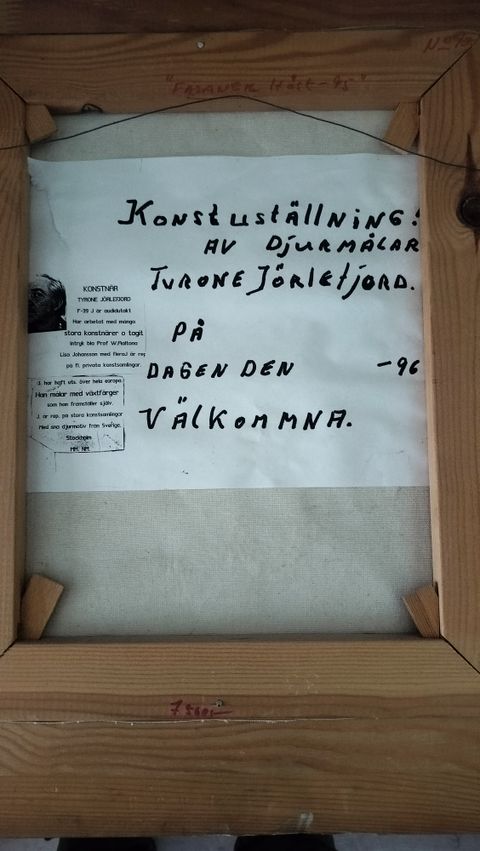 "FASANER Höst-95"
Konstuställning!
AV Djurmålar
Tyrone Jörlefjord.
På
DAGEN DEN -96
VÄLKOMMNA.
KONSTNÄR
TYRONE JÖRLEFJORD
F-39 J är autodidakt
Har arbetat med många
stora konstnärer o tagit
intryk bla Prof W.Aaltona
Lisa Johansson med flera J är rep
på fl. privata konstsamlingar
J. har haft uts. över hela europa
Han målar med växtfärger
som han framställer själv.
J. är rep. på stora konstsamlingar
Med sna djurmotiv från Sverige.
Stockholm
MM. NM.